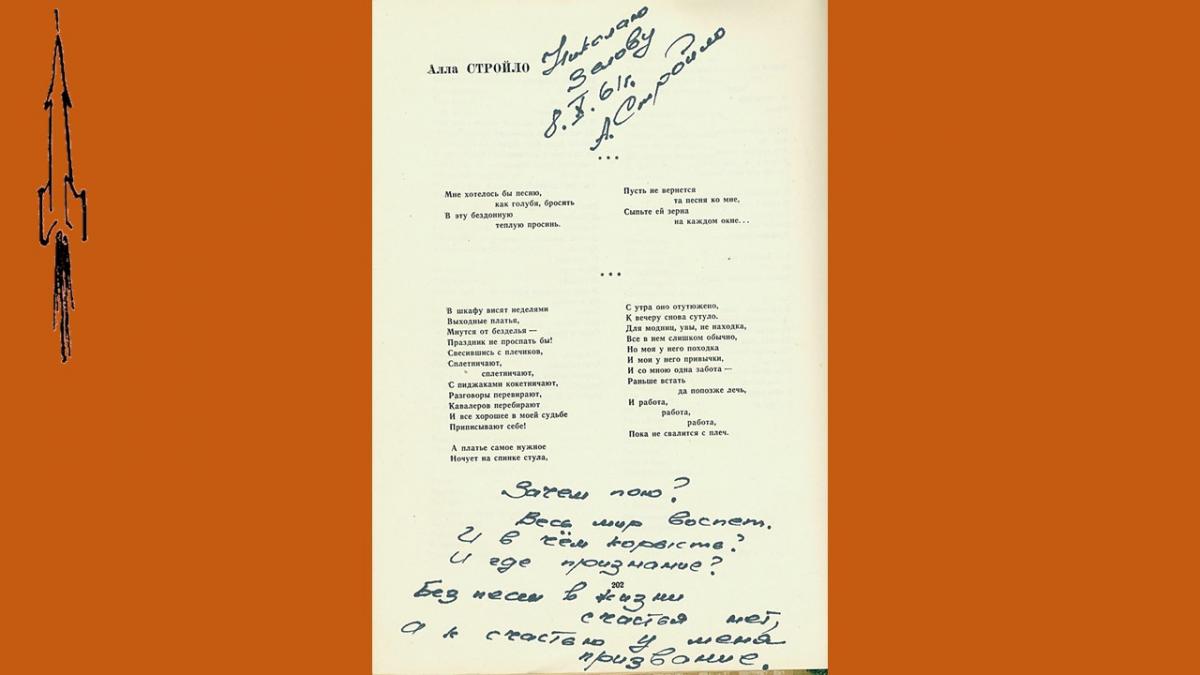 Алла СТРОЙЛО
Николаю
Зелову
8.X.61г.
А. Стройло
* * *
Мне хотелось бы песню,
как голубя, бросить
В эту бездонную
теплую просинь.
Пусть не вернется
та песня ко мне,
Сыпьте ей зерна
на каждом окне...
* * *
В шкафу висят неделями
Выходные платья,
Мнутся от безделья —
Праздник не проспать бы!
Свесившись с плечиков,
Сплетничают,
сплетничают,
С пиджаками кокетничают,
Разговоры перевирают,
Кавалеров перебирают
И все хорошее в моей судьбе
Приписывают себе!
А платье самое нужное
Ночует на спинке стула,
С утра оно отутюжено,
К вечеру снова сутуло.
Для модниц, увы, не находка,
Все в нем слишком обычно,
Но моя у него походка
И мои у него привычки,
И со мною одна забота —
Раньше встать
да попозже лечь,
И работа,
работа,
работа,
Пока не свалится с плеч.
Зачем пою?
Весь мир воспет.
И в чём корысть?
И где признание?
202
Без песен в жизни
счастья нет,
А к счастью у меня
призвание.